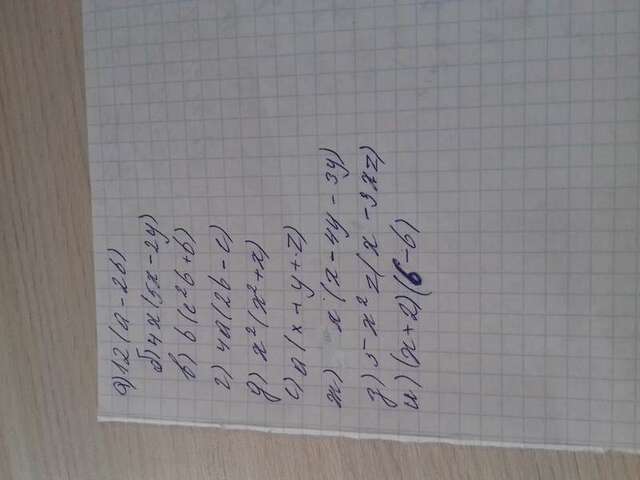 а) 12(a-2b)
б) 4x(5x-2y)
в) b(c²b+b)
г) 4a(2b-c)
д) x²(x²+x)
е) a(x+y+z)
ж) x(x-4y-3y)
з) 5x²z(x-3xz)
и) (x+2)(b-6)